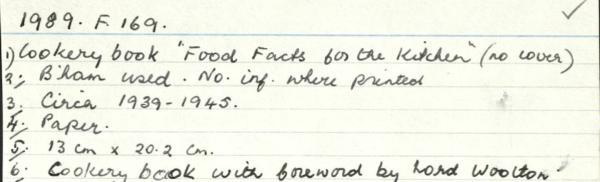 1989. F. 169.
1) Cookery book "Food Facts for the Kitchen" (no cover)
2; B'ham used. No. inf. where printed
3. Circa 1939-1945.
4; Paper.
5; 13 cm x 20.2 cm.
6; Cookery book with foreword by Lord Woolton